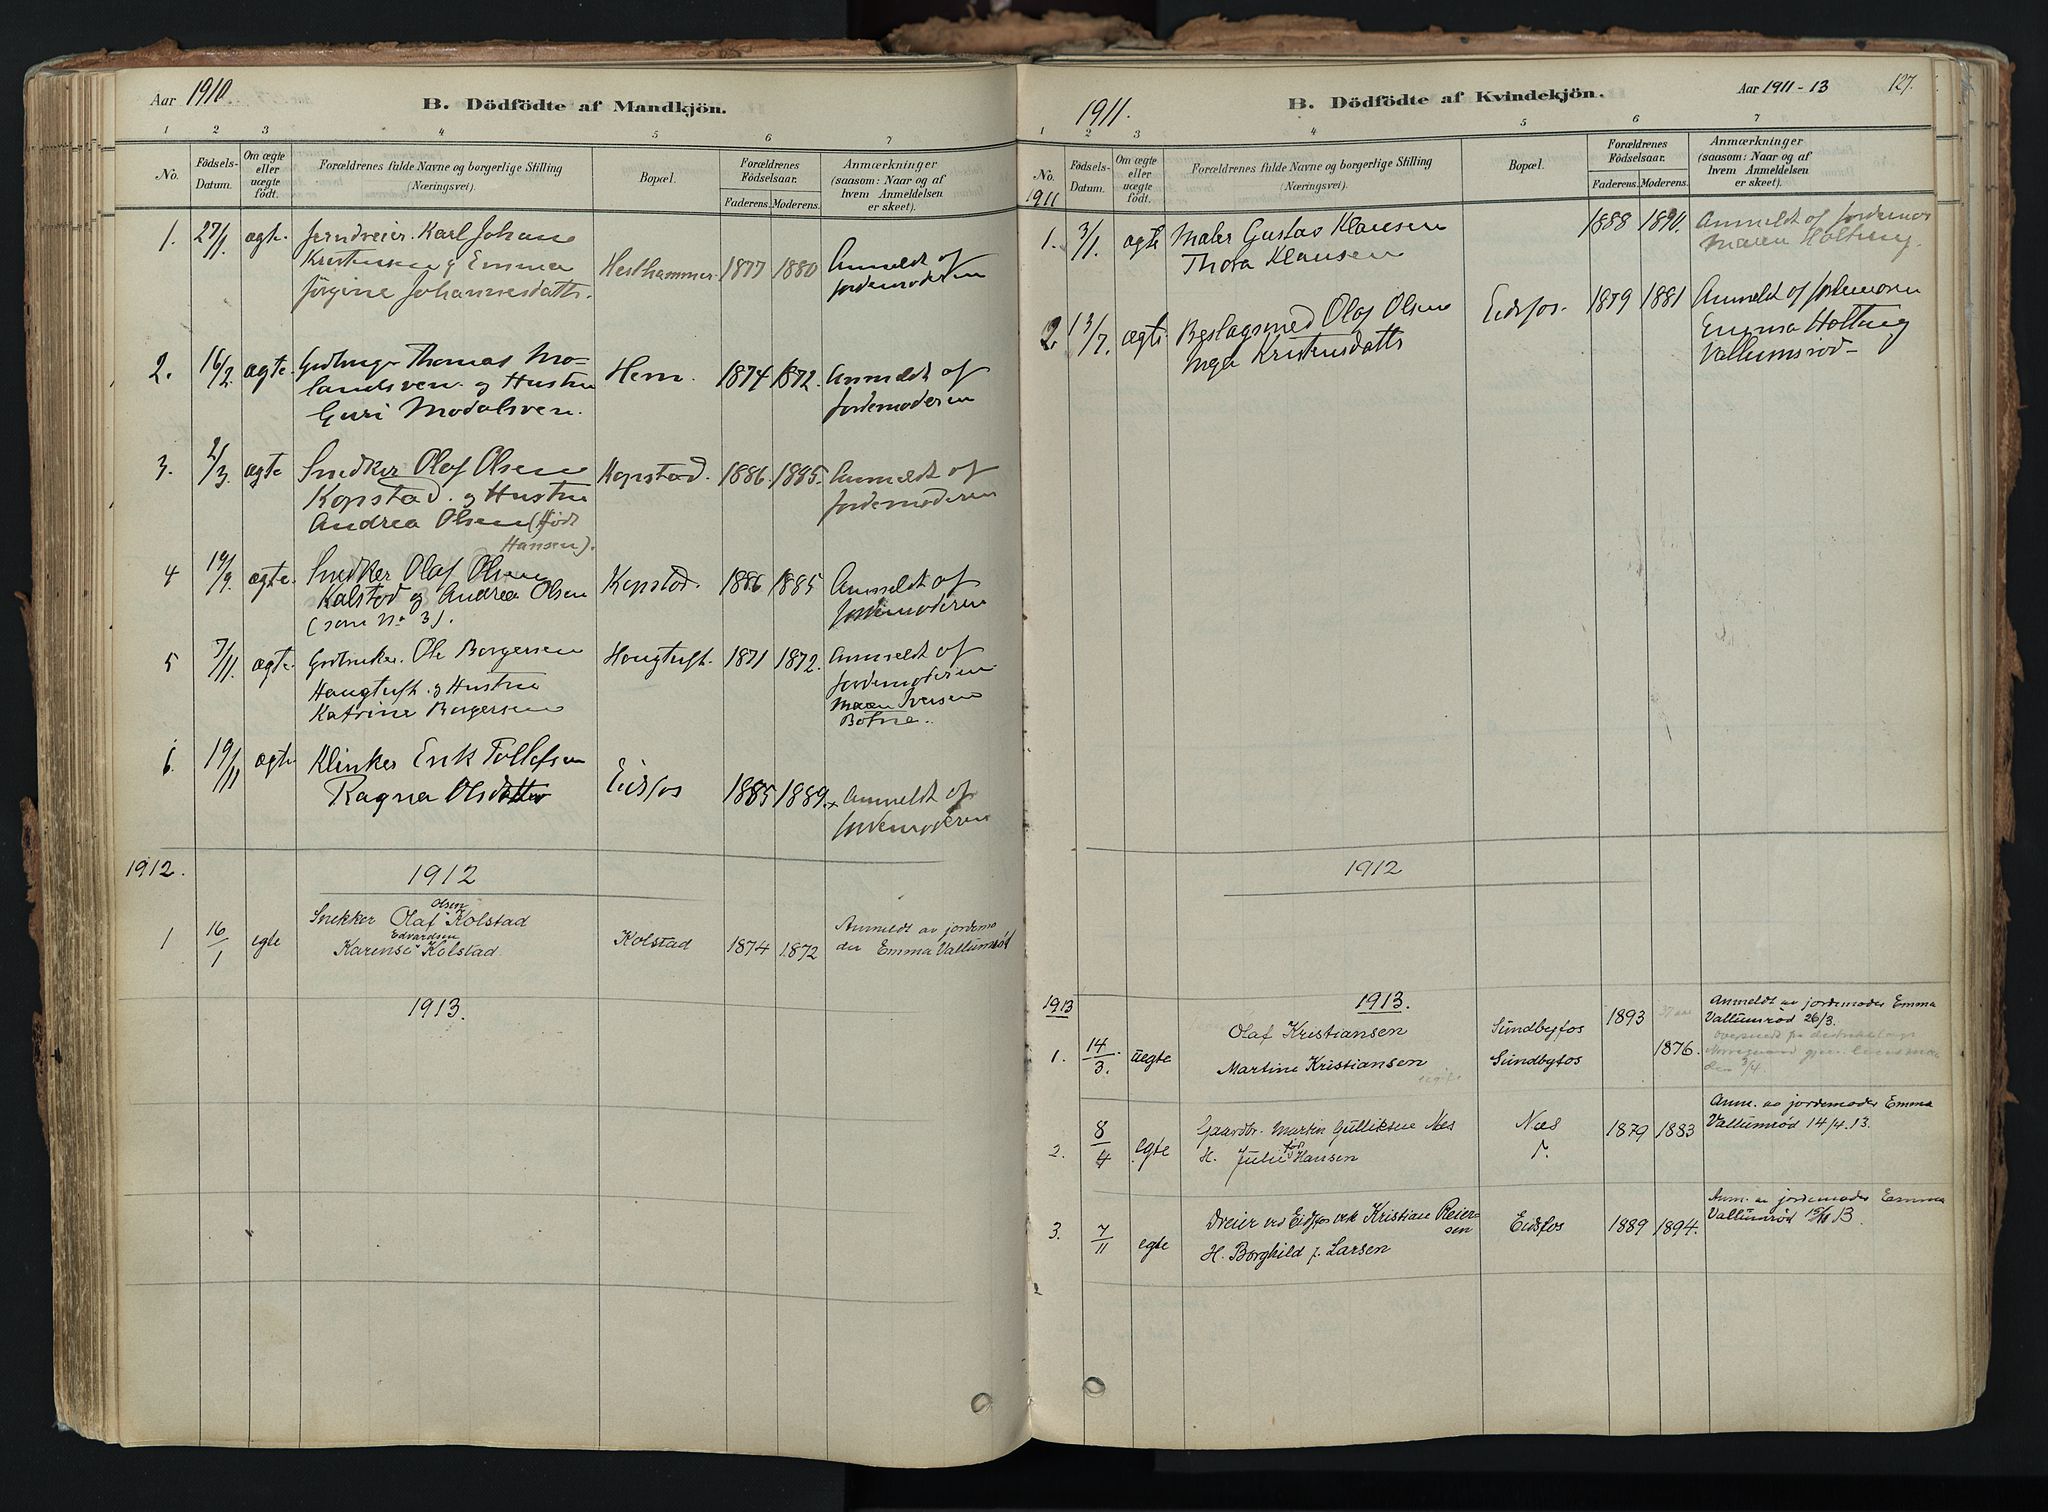 Aar 1910
B. Dödfödte af Mandkjön.
1 2 3 4 5 6 7
No.
Födsels-Datum.
Om ægte eller uægte födt.
Forældrenes fulde Navne og borgerlige Stilling (Næringsvei).
Bopæl.
Forældrenes Födselsaar.
Faderens. Moderens.
Anmærkninger (saasom: Naar og af hvem Anmeldelsen er skeet).
1. 27/1 ægte. Jerndreier Karl Johan
Kristensen og Emma Hesthammer 1877 1880 Anmeldt af
Jørgine Johannesdatter. Jordemoderen
2. 16/2 ægte. Thomas Mo-
landsven og Hustru Hem. 1874 1872. Anmeldt af
Guri Modalsven. Jordemoderen
3. 2/3 ægte Snedker Olaf Olsen Kopstad. 1886. 1885. Anmeldt af
Kopstad og Hustru Jordemoderen
Andrea Olsen (født
Hansen).
4 19/9. ægte. Snedker Olaf Olsen Kopstad. 1886 1885 Anmeldt af
Kalstad og Andrea Olsen Jordemoderen
(som No 3).
5 7/11. ægte. Ole Borgersen Hougtuft. 1871 1872. Anmeldt af
Haugtuft og Hustru Jordemoderen
Katrine Borgersen Maren Iversen
Bothne.
6. 19/11 ægte Klinker Erik Tollefsen
Ragna Olsdatter Eidsfos 1885 1889. Anmeldt af
Jordemoderen
1912. 1912
Olsen
Snekker Olaf Kolstad
Edvardsen
1 16/1 egte Karense Kolstad Kolstad 1874 1872 Anmeldt av jordemo
der Emma Vallumrød
1913.
1911.
B. Dödfödte af Kvindekjön.
Aar 1911-13
127.
1 2 3 4 5 6 7
No.
1911
Födsels-Datum.
Om ægte eller uægte födt.
Forældrenes fulde Navne og borgerlige Stilling (Næringsvei).
Bopæl.
Forældrenes Födselsaar.
Faderens. Moderens.
Anmærkninger (saasom: Naar og af hvem Anmeldelsen er skeet).
1. 3/1. ægte Maler Gustav Klausen 1888 Anmeldt af Jordemor
Thora Klausen Maren Holtung.
2. 13/7. ægte Beslagsmed Olaf Olsen Eidsfos. 1879 1881 Anmeldt af Jordemoren
Inga Kristensdatter Emma Holtung
Vallumsrød
1912
1913 1913.
Olaf Kristiansen Sundbyfos 1893 Anmeldt av jordemoder Emma
Vallumrød 26/3.
1. 14/3. uegte Martine Kristiansen Sundbyfos 1876.
2. 8/4 egte Gaardbr. Martin Gulliksen Næs Næs 1879 1883 Anm. av jordemoder Emma
H. Julie fød Hansen Vallumrød 14/4.13.
3. 7/11 egte Dreier ved Eidsfos verk Kristian Reier-
sen Eidsfos 1889 1894. Anm. av jordemoder Emma
H. Borghild f. Larsen Vallumrød 15/11 13.